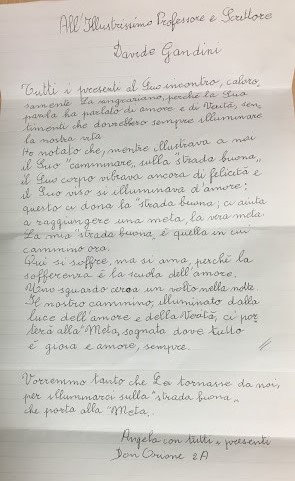 All'Illustrissimo Professore e Scrittore
Davide Gandini
Tutti i presenti al Suo incontro, caloro-
samente La ringraziano, perché la Sua
parola ha parlato di amore e di Verità, sen-
timenti che dovrebbero sempre illuminare
la nostra vita.
Ho notato che, mentre illustrava a noi
il Suo "camminare" sulla "strada buona",
il Suo corpo vibrava ancora di felicità e
il Suo viso si illuminava d'amore:
questo ci dona la "strada buona": ci aiuta
a raggiungere una meta, la vera meta.
La mia "strada buona" è quella in cui
cammino ora.
Qui si soffre, ma si ama, perché la
sofferenza è la scuola dell'amore.
Uno sguardo cerca un volto nella notte.
Il nostro cammino, illuminato dalla
luce dell'amore e della Verità, ci por-
terà alla "Meta" sognata dove tutto
è gioia e amore, sempre. //
Vorremmo tanto che Lei tornasse da noi,
per illuminarci sulla "strada buona"
che porta alla "Meta".
Angela con tutti i presenti
Don Orione 2A